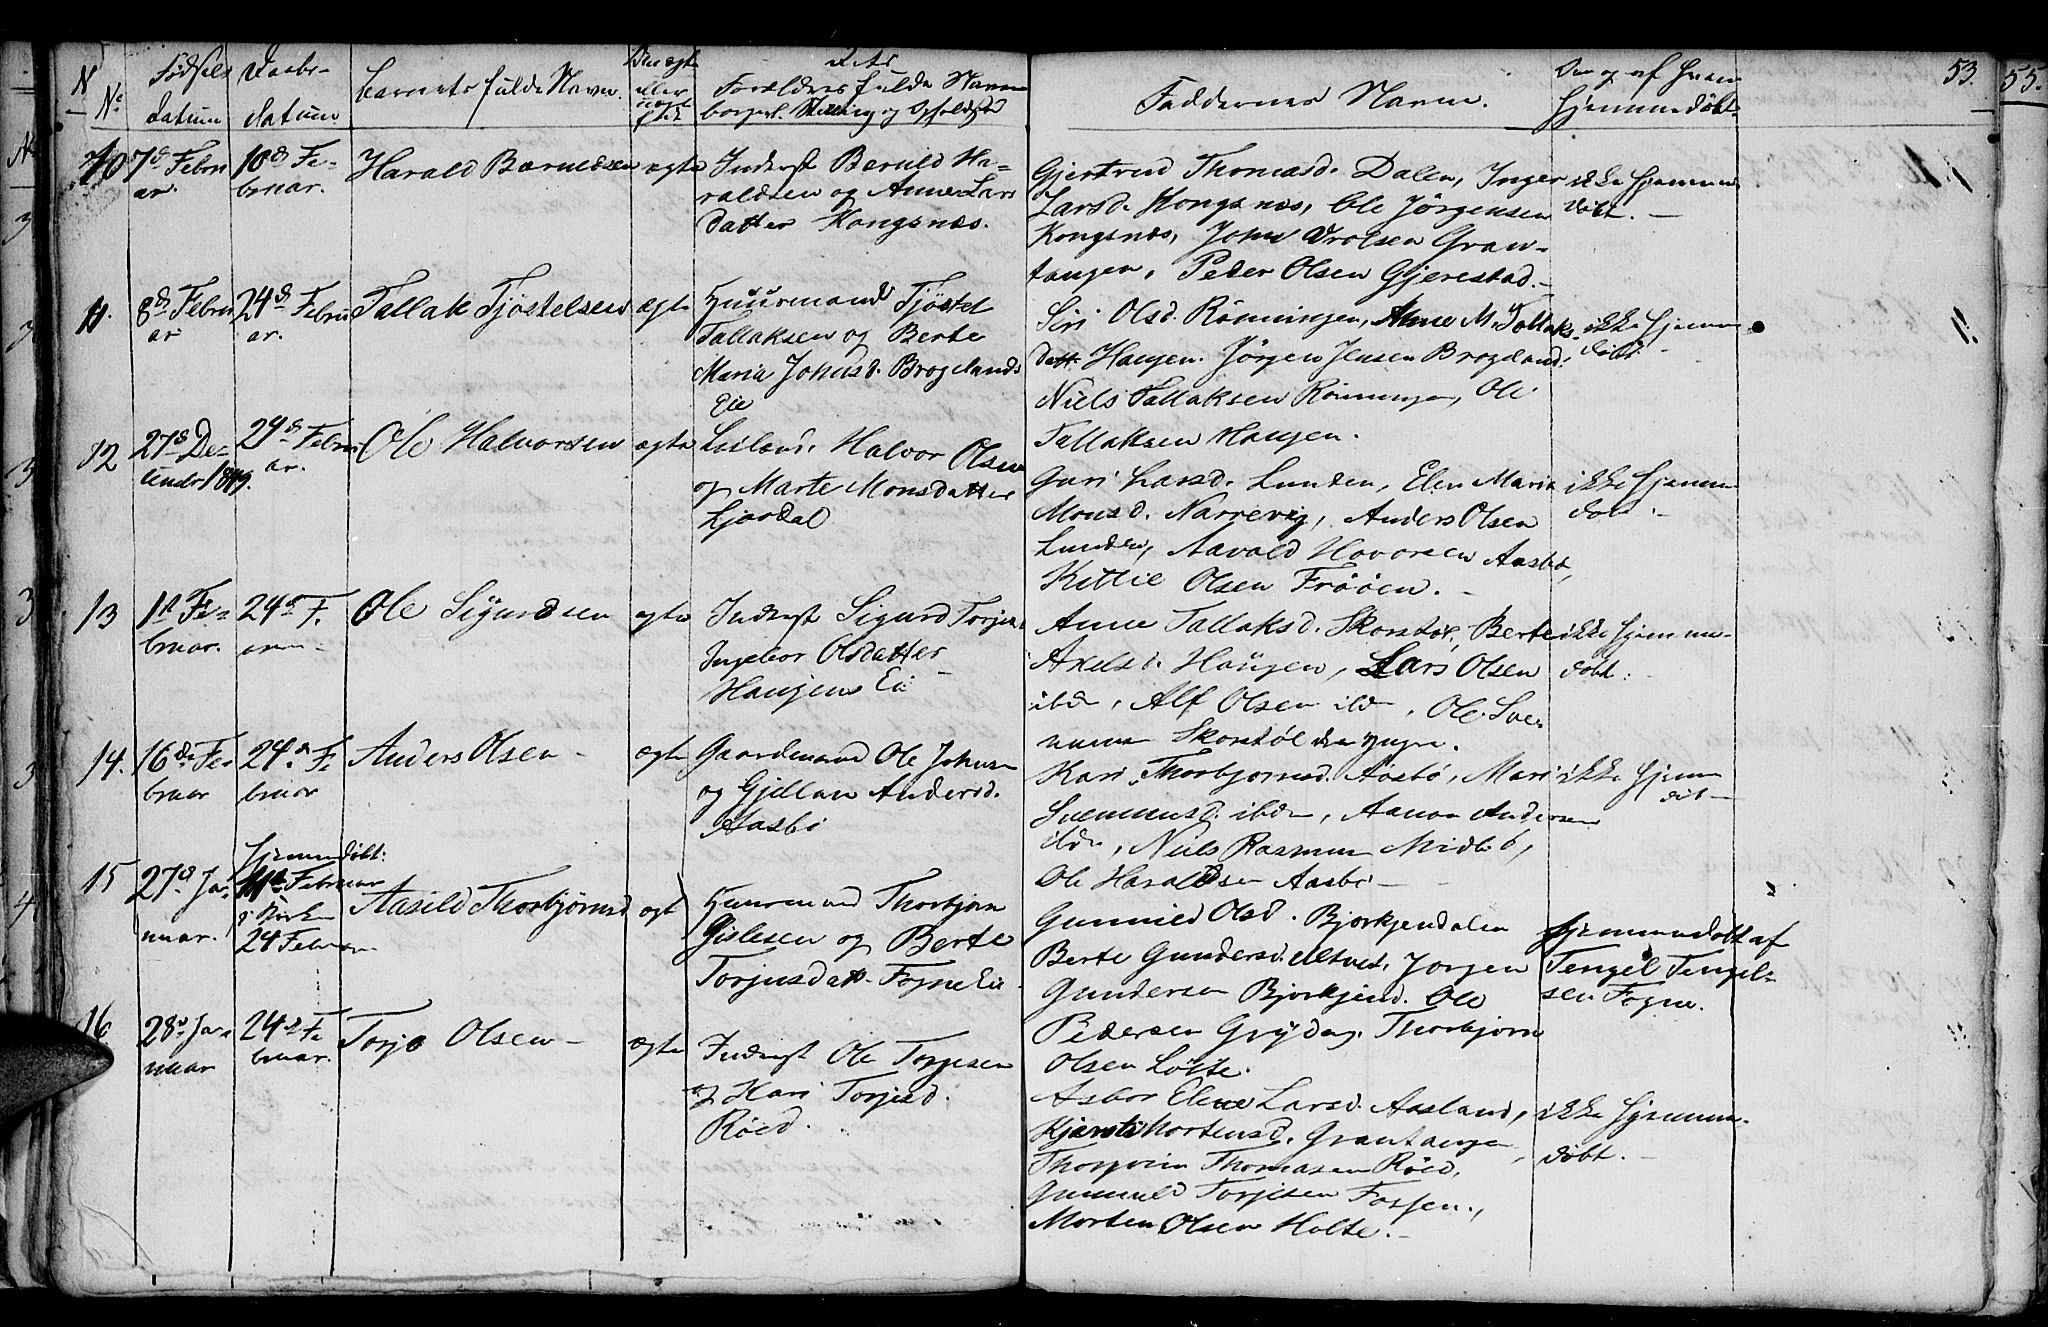 No. Fødsels datum
Daabs-datum
Barnets fulde Navn.
Om ægte eller uægte
Forældres fulde Navne borgerl. Stilling og Opholdsted
Faddernes Navne.
Om og af hvem hjemmedöbt.
53.
55.
10
7d Februar.
10d Februar.
Harald Beruldsen
ægte
Inderst Beruld Ha-
raldsen og Anne Lars
datter Kongsnæs.
Gjertrud Thomasd. Dalen, Inger
Larsd. Kongsnæs, Ole Jörgensen
Kongsnæs, John Orolsen Gran-
tangen, Peder Olsen Gjerestad.
ikke hjemme
döbt.
11.
8d Februar
24d Februar.
Tallak Tjöstelsen
ægte
Huusmand Tjöstel
Tallaksen og Berte
Maria Johnsd. Brogelands
Eie
Siri Olsd. Rönningen, Anne M. Tallaks-
datt. Haugen. Jörgen Jensen Brogeland.
Niels Tallaksen Rönningen, Ole
Tallaksen Haugen.
ikke hjemme
döbt
12
27d De-
cember 1849.
24d Februar.
Ole Halvorsen
ægte
Halvor Olsen
og Marte Monsdatter
Ljosdal
Guri Larsd. Lunden, Elen Maria
Monsd. Narrevig, Anders Olsen
Lunden, Aavald Hovorsen Aasbö,
Kittil Olsen Frööen.
ikke hjemme
döbt.
13
1st Fe-
bruar.
24d F.
Ole Sigurdsen
ægte
Inderst Sigurd Torjus.
Ingebor Olsdatter
Haugens Eie
Anne Tallaksd. Skorstöl, Berte
Axelsd. Haugen, Lars Olsen
ibd, Alf Olsen ibd, Ole Sve-
numsen Skorstöl den yngre.
ikke hjemme-
döbt.
14.
16de Fe-
bruar
24d Fe
bruar
Anders Olsen
ægte
Gaardmand Ole Johnsen
og Gjellau Andersd.
Aasbö
Kari Thorbjörnsd. Aasbö, Mari
Svennumsd. ibdm, Aanon Andersen
ibdm, Niels Rasmusen Midbö,
Ole Haraldsen Aasbö
ikke hjemme
döbt
15
27d Ja-
nuar.
hjemmedöbt:
11te Februar
i Kirken
24 Februar
Aasild Thorbjörnsd
ægte
Huusmand Thorbjörn
Gislesen og Berte
Torjusdatt. Fogne Eie
Gunnild Olsd. Bjorkjendalen
Berte Gundersd. Altvedt, Jorgen
Gundersen Bjorkjend. Ole
Pedersen Gryting, Thorbjorn
Olsen Löite.
hjemmedöbt af
Tengel Tengel-
sen Fogne.
16
28d Ja-
nuar
24d Fe
bruar.
Torjo Olsen
ægte
Inderst Ole Torjesen
og Kari Torjusd.
Röed.
Asbor Elene Larsd. Aasland,
Kjersti Mortensd. Grantangen,
Thorsvein Thomasen Röed,
Gunnuld Torjesen Fossen.,
Morten Olsen Holte.
ikke hjemme-
döbt.